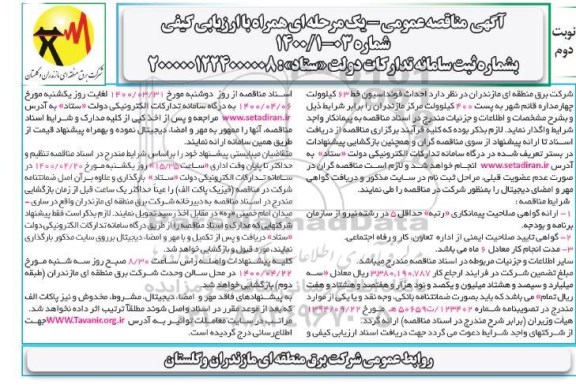 آگهی مناقصه عمومی – یک مرحله ای همراه با ارزیابی کیفی
شماره ۰۳-۱۴۰۰/۱
بشماره ثبت سامانه تدارکات دولت «ستاد»: ۲۰۰۰۰۰۱۲۲۴۰۰۰۰۰۸
نوبت
دوم
شرکت برق منطقه ای مازندران و گلستان
شرکت برق منطقه ای مازندران در نظر دارد احداث فونداسیون خط ۶۳ کیلوولت
چهارمداره قائم شهر به پست ۴۰۰ کیلوولت مرکز مازندران را برابر شرایط ذیل
و بشرح مشخصات و اطلاعات و جزئیات مندرج در اسناد مناقصه به پیمانکار واجد
شرایط واگذار نماید. لازم بذکر بوده که کلیه فرآیند برگزاری مناقصه از دریافت
اسناد تا ارائه پیشنهاد از سوی مناقصه گران و همچنین بازگشایی پیشنهادات
در بستر تعریف شده در درگاه سامانه تدارکات الکترونیکی دولت «ستاد» به
آدرس www.setadiran.ir انجام خواهد شد و لازم است مناقصه گران در
صورت عدم عضویت قبلی، مراحل ثبت نام در سایت مذکور و دریافت گواهی
مهر و امضای دیجیتال را بمنظور شرکت در مناقصه را طی نمایند.
شرایط مناقصه:
۱- ارائه گواهی صلاحیت پیمانکاری «رتبه» حداقل ۵ در رشته نیرو از سازمان
برنامه و بودجه.
۲- گواهی تایید صلاحیت ایمنی از اداره تعاون، کار و رفاه اجتماعی.
۳- مدت انجام کار معادل ۶ ماه می باشد.
سایر اطلاعات و جزئیات مربوطه در اسناد مناقصه مندرج میباشد.
مبلغ تضمین شرکت در فرایند ارجاع کار ۳۳۸۰،۱۹۰،۷۸۷ ریال معادل «سه
میلیارد و سیصد و هشتاد میلیون و یکصد و نود هزار و هفتصد و هشتاد و هفت
ریال تمام» می باشد که باید بصورت ضمانتنامه بانکی، وجه نقد و یا یکی از موارد
مندرج در تصویبنامه شماره ۱۲۳۴۰۲/ت۵۰۶۵۹ هـ مورخ ۱۳۹۴/۰۹/۲۲
هیأت وزیران (برابر شرح مندرج در اسناد مناقصه) ارائه گردد.
از شرکتهای واجد شرایط دعوت می گردد جهت دریافت اسناد ارزیابی کیفی و
اسناد مناقصه از روز دوشنبه مورخ ۱۴۰۰/۰۳/۳۱ لغایت روز یکشنبه مورخ
۱۴۰۰/۰۴/۰۶ به درگاه سامانه تدارکات الکترونیکی دولت «ستاد» به آدرس
www.setadiran.ir مراجعه و پس از اخذ کپی از کلیه مدارک و شرایط اسناد
مناقصه، آنها را ممهور به مهر و امضا، دیجیتال نموده و بهمراه پیشنهاد قیمت از
طریق همین سامانه ارائه نمایند.
متقاضیان میبایستی پیشنهاد خود را بر اساس شرایط مندرج در اسناد مناقصه تنظیم و
حداکثر تا پایان وقت اداری «ساعت ۱۵/۳۵» روز یکشنبه مورخ ۱۴۰۰/۰۴/۲۰ در
سامانه تدارکات الکترونیکی دولت «ستاد» بارگذاری و علاوه بر آن اصل ضمانتنامه
شرکت در مناقصه (فیزیک پاکت الف) را عیناً حداکثر یک ساعت قبل از زمان بازگشایی
مندرج در اسناد مناقصه به دبیرخانه شرکت برق منطقه ای مازندران واقع در ساری -
میدان امام خمینی «ره» در مقابل اخذ رسید تحویل نمایند. لازم بذکر است فقط پیشنهاد
شرکتهایی که مدارک و اسناد مناقصه را از طریق درگاه سامانه تدارکات الکترونیکی دولت
«ستاد» دریافت و پس از تکمیل و با مهر و امضا، دیجیتال بر روی سایت مذکور بارگذاری
نمایند، مورد قبول و بازگشایی خواهد شد.
کلیه پیشنهادات واصله رأس ساعت ۸/۳۰ صبح روز سه شنبه مورخ
۱۴۰۰/۰۴/۲۲ در محل سالن وحدت شرکت برق منطقه ای مازندران (طبقه
دوم) بازگشایی خواهد شد.
به پیشنهادهای فاقد مهر و امضا، دیجیتال، مشروط، مخدوش و نیز پاکات الف
که بعد از موعد مقرر در اسناد واصل شوند مطلقاً ترتیب اثر داده نخواهد شد.
مراتب در سایت معاملات توانیر به آدرس www.Tavanir.org.ir جهت
اطلاع رسانی درج گردیده است.
روابط عمومی شرکت برق منطقه ای مازندران و گلستان